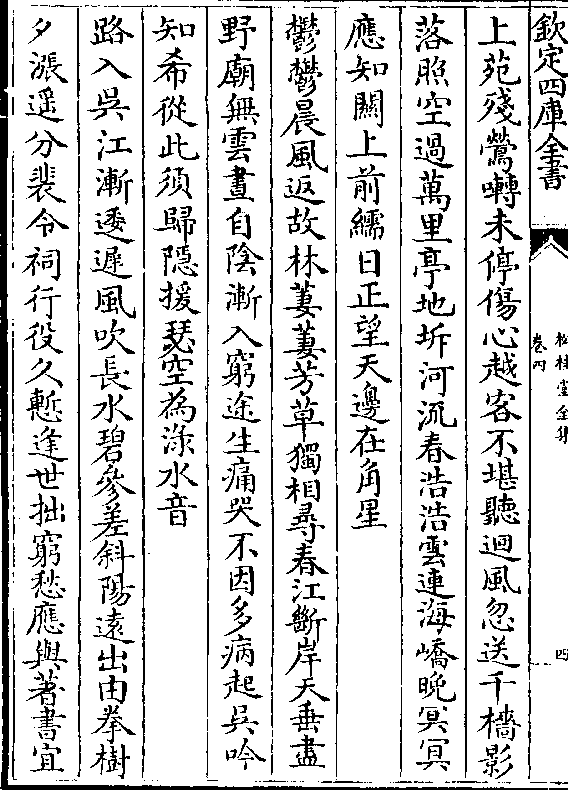 欽定四庫全書
松桂堂全集
卷四
四
上苑殘鶯囀未停傷心越客不堪聽迴風忽送千檣影
落照空過萬里亭地坼河流春浩浩雲連海嶠晚冥冥
應知關上前繻日正望天邊在角星
鬱鬱晨風返故林萋萋芳草獨相尋春江斷岸天垂盡
野廟無雲晝自陰漸入窮途生痛哭不因多病起吳吟
知希從此須歸隱援瑟空為淥水音
路入吳江漸逶遲風吹長水碧參差斜陽遠出由拳樹
夕漲遥分裴令祠行役久慙逢世拙窮愁應與著書宜